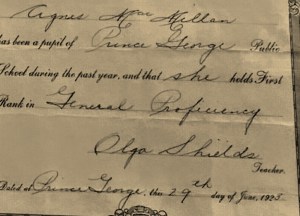 Agnes Mac Millan
has been a pupil of Prince George Public
School during the past year, and that she holds First
Rank in General Proficiency
Olga Shields
Teacher.
Dated at Prince George, this 29th day of June, 1925